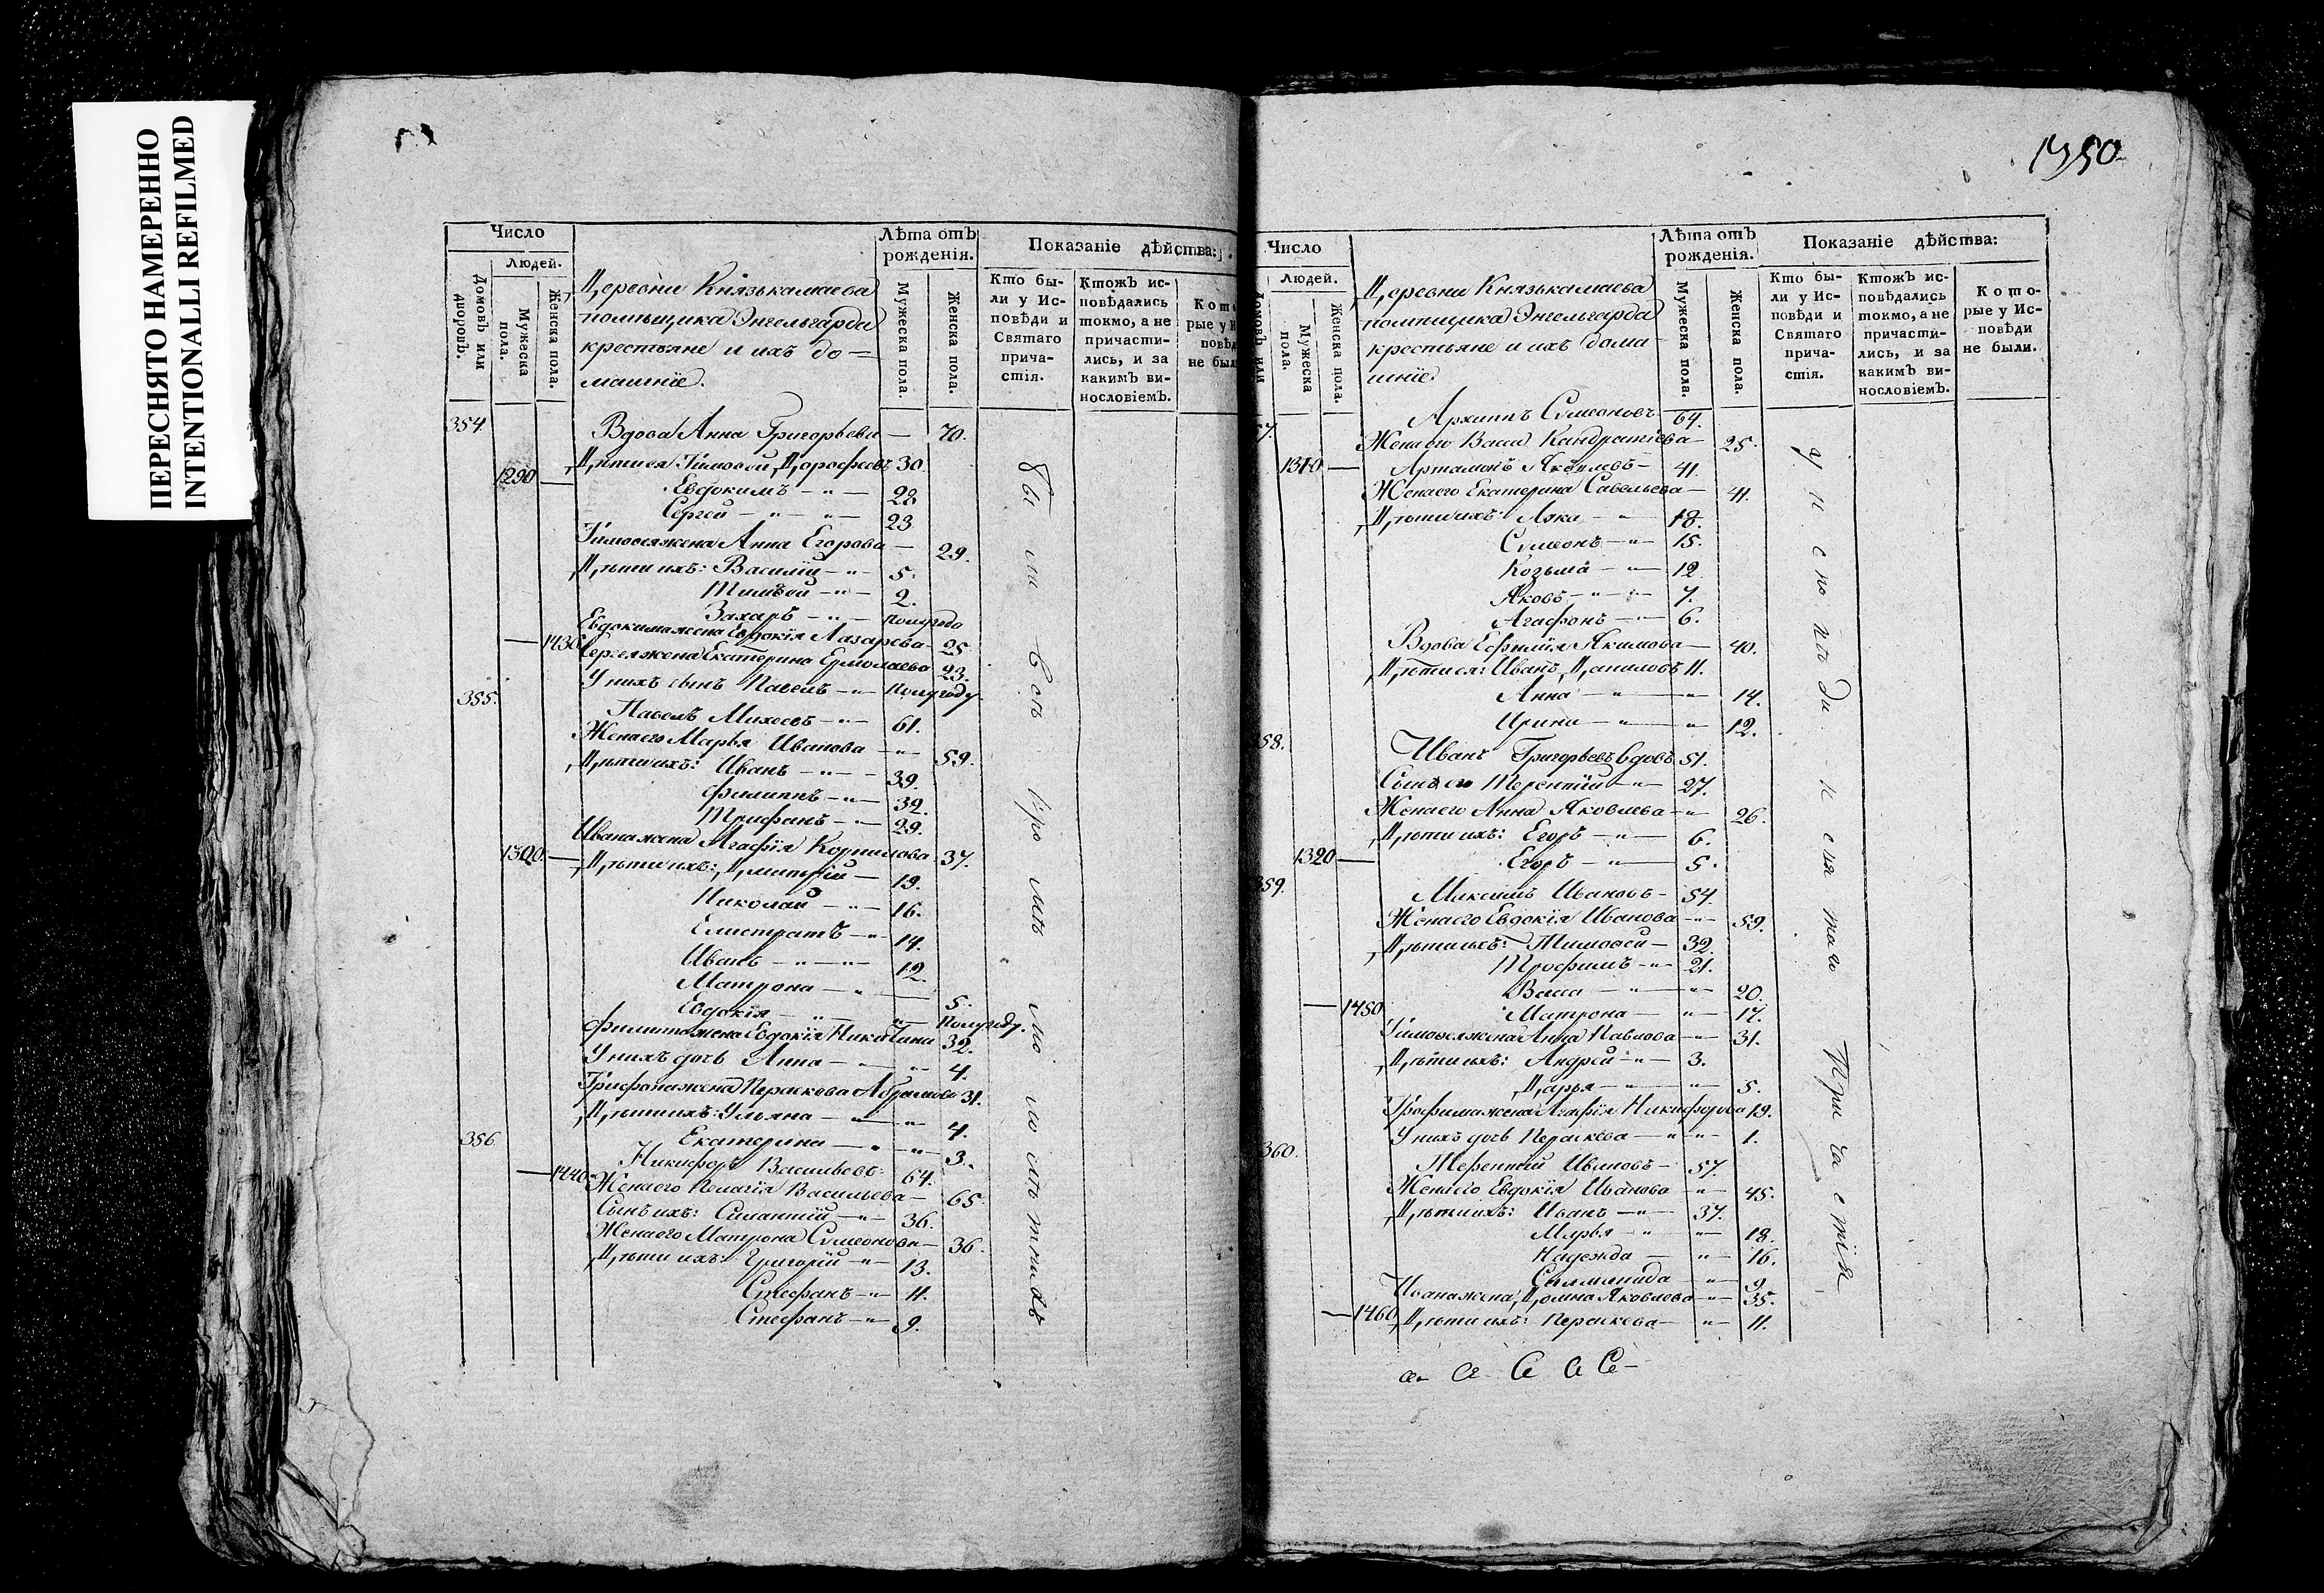 ПЕРЕСНЯТО НАМЕРЕННО
INTENTIONALLI REFILMED
Число
Людей.
Домовъ или дворовъ.
Мужеска пола.
Женска пола.
Деревни Князькамаева
помѣщика Энгельгарда
крестьяне и ихъ до=
машніе.
Лѣта отъ рожденія.
Мужеска пола.
Женска пола.
Показаніе дѣйства:
Кто бы-
ли у Ис-
повѣди и
Святаго
прича-
стія.
Ктожъ ис-
повѣдались
токмо, а не
причасти-
лись, и за
какимъ ви-
нословіемъ.
354. Вдова Анна Григорьева — 70.
1290 — Дѣти ея Тимофей Дорофеевъ 30.
Евдокимъ - " — 28
Сергей — " — " — 23
Тимофея жена Анна Егорова — 29.
Дѣти ихъ: Василій - " — 5.
2.
Захаръ - " — полугода
Евдокима жена Евдокія Лазарева - 25
— 1430 Сергея жена Екатерина Ермолаева 23.
У нихъ сынъ Павелъ — " Полугоду
355. Павелъ Михеевъ - " — 61.
Жена его Марья Иванова — " 59.
Дѣти ихъ: Иванъ - " — 39.
Филиппъ - " — 32.
Трифанъ - " — 29.
Ивана жена Агафія Корнилова 37.
1300 — Дѣти ихъ: Димитрій — 19.
Николай — " — 16.
Елистратъ — " 14.
Иванъ — " — " — 12.
Матрона — " — 5.
Евдокія — " — " — Полугоду.
Филипа жена Евдокія Никитина 32.
У нихъ дочь Анна — " — " 4.
Трифана жена Параскова Абрамова 31.
Дѣти ихъ: Ульяна — " — " 4.
Екатерина — " — " 3.
356 Никифоръ Васильевъ 64.
— 1440 Жена его Пелагія Васильева — 65.
Сынъ ихъ: Силантій — " 36.
Жена его Матрона Сумеонова — 36.
Дѣти ихъ: Григорій — " 13.
Стефанъ — " 11.
Стефанъ — " 9.
1350
Число
Людей.
Мужеска пола.
Женска пола.
Деревни Князькамаева
помѣщика Энгельгарда
крестьяне и ихъ дома-
шніе.
Лѣта отъ рожденія.
Мужеска пола.
Женска пола.
Показаніе дѣйства:
Кто бы-
ли у Ис-
повѣди и
Святаго
прича-
стія.
Ктожъ ис-
повѣдались
токмо, а не
причасти-
лись, и за
какимъ ви-
нословіемъ.
Кото-
рые у Ис-
повѣди
не были.
7. Архипъ Сумеоновъ 64.
Жена его Васса Кандратіева — 25.
1310 — Артамонъ Яковлевъ — 41.
Жена его Екатерина Савельева — 41.
Дѣти ихъ: Лука — " 18.
Сумеонъ — " 15.
Козьма — " 12
Яковъ - " — " — 7.
Агафонъ — " 6.
Вдова Ефимія Якимова — 40.
Дѣти ея: Иванъ Даниловъ 11.
Анна — " — " — 14.
Ирина — " — " — 12.
58. Иванъ Григорьевъ вдовъ 51.
Сынъ его Терентій — " 27.
Жена его Анна Яковлева — " 26.
Дѣти ихъ: Егоръ — " — 6.
1320 — Егоръ — " — 5.
359. Максимъ Ивановъ — 54.
Жена его Евдокія Иванова — " 59.
Дѣти ихъ: Тимофей — 32.
Трофимъ — " 21.
Васса — " — " 20.
— 1450 Матрона — " 17.
Тимофея жена Анна Павлова — " 31.
Дѣти ихъ: Андрей — " 3.
Дарья — " — " 5.
Трофима жена Агафія Никифорова 19.
У нихъ дочь Параскева — " — " 1.
360. Терентій Ивановъ — 57.
Жена его Евдокія Иванова — " 45.
Дѣти ихъ: Иванъ — " 37.
Марья — " — " 18.
Надежда — " 16.
9
Ивана жена Домна Яковлева — " 35.
— 1460 Дѣти ихъ: Параскева — " 11.